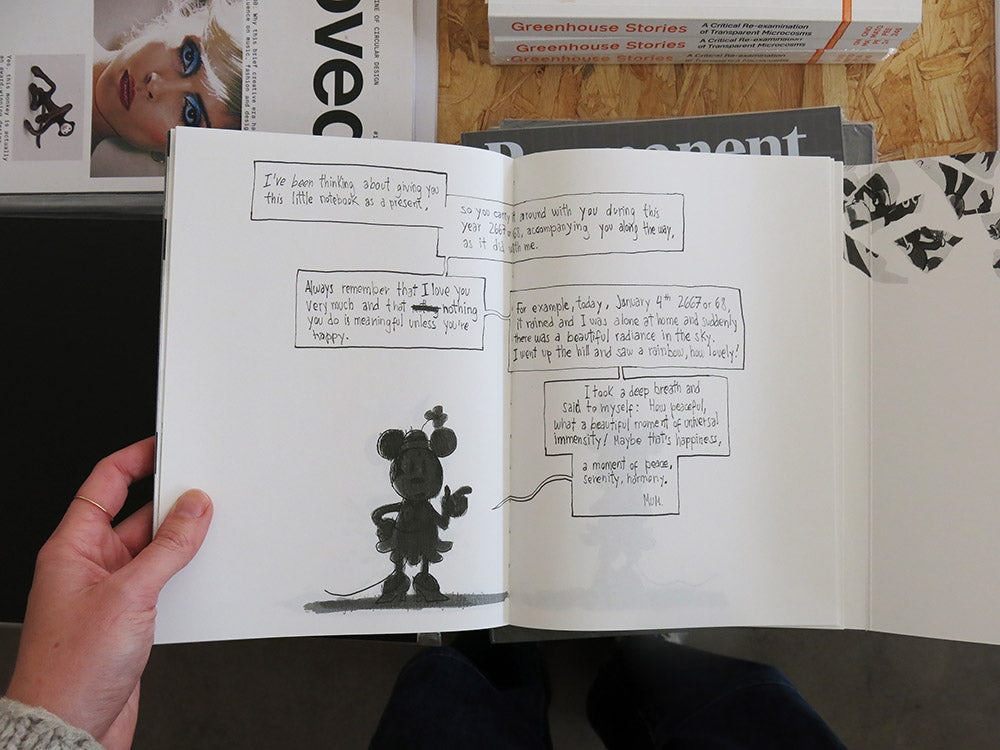 Greenhouse Stories
A Critical Re-examination
of Transparent Microcosms
Greenhouse Stories
A Critical Re-examination
of Transparent Microcosms
Greenhouse Stories
A Critical Re-examination
I've been thinking about giving you
this little notebook as a present,
so you carry it around with you during this
year 2667 or 68, accompanying you along the way,
as it did with me.
Always remember that I love you
very much and that nothing
you do is meaningful unless you're
happy.
For example, today, January 4th 2667 or 68,
it rained and I was alone at home and suddenly
there was a beautiful radiance in the sky.
I went up the hill and saw a rainbow, how lovely!
I took a deep breath and
said to myself: How peaceful,
what a beautiful moment of universal
immensity! Maybe that's happiness,
a moment of peace,
serenity, harmony.
MUM.